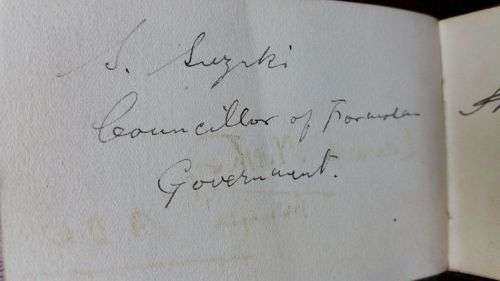 S. Suzuki
Councillor of Formosan
Government.